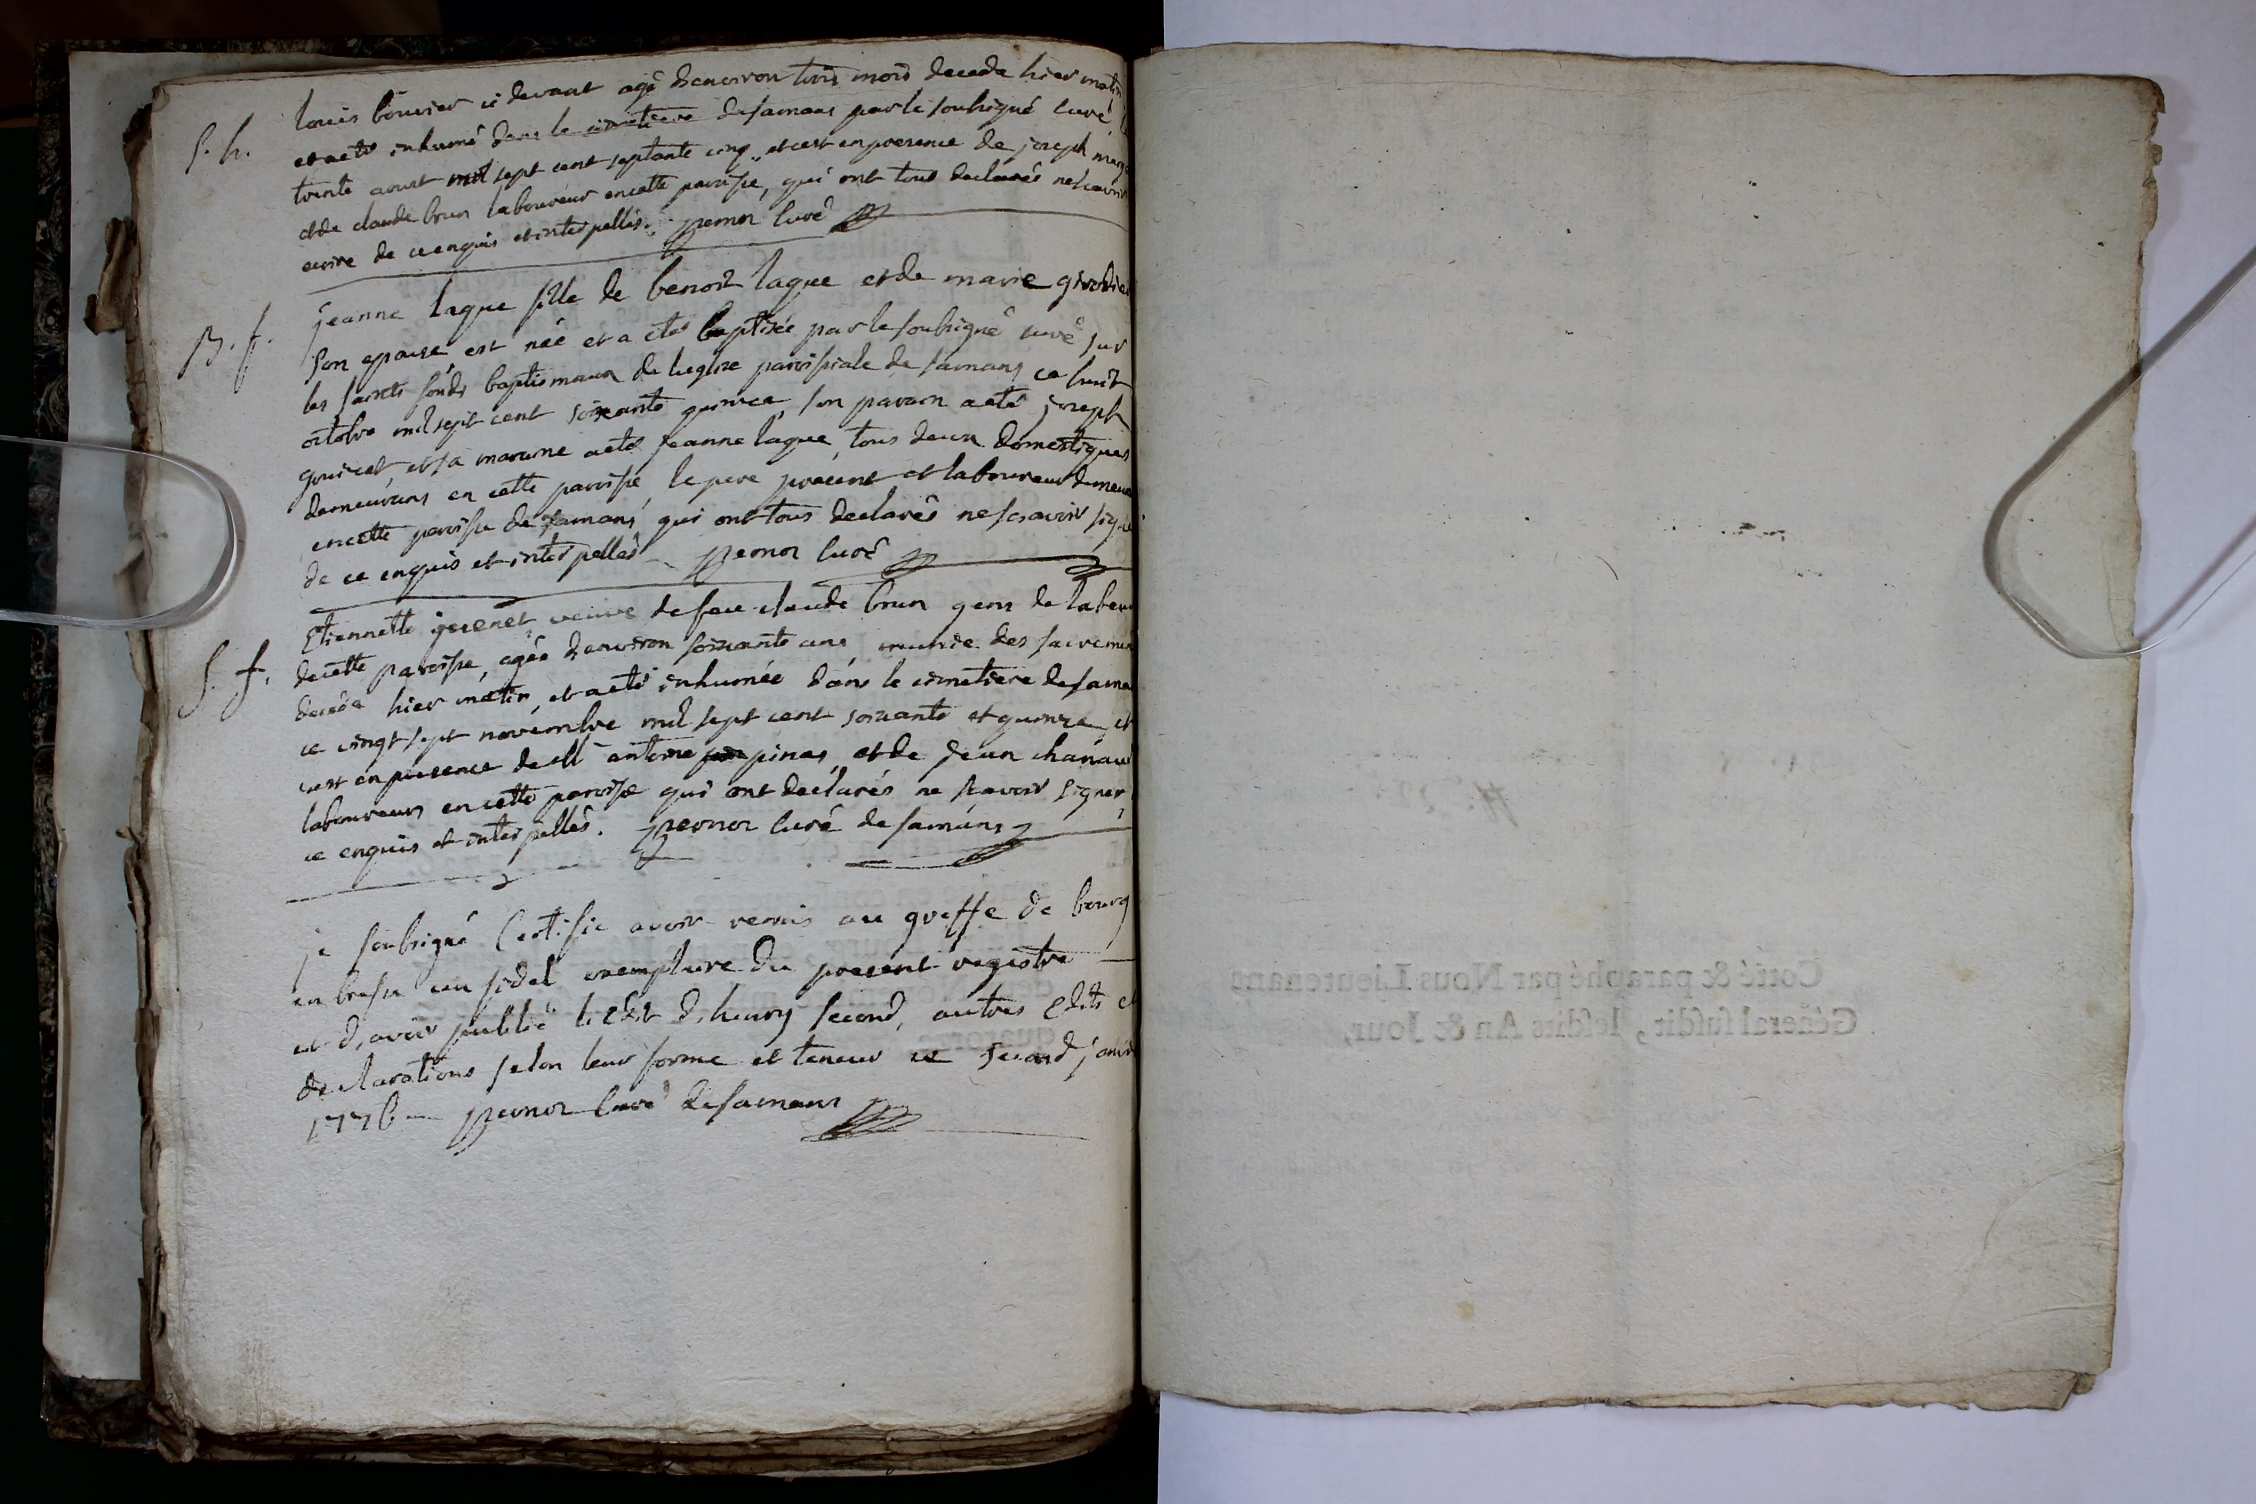 S. h.
louis bouvier ci devant agé denviron trois mois deceda hier matin
et a eté inhumé dans le cimetiere de samans par le soubsigné curé
trente aoust mil sept cent septante cinq et cest en presence de joseph
et de claude brun laboureur en cette paroisse, qui ont tous declarés ne scavoir
ecrire de ce enquis et interpellés. pernon curé
B. f.
jeanne laque fille de benoit laque et de marie
son epouse est née et a eté baptisée par le soubsigné curé sur
les saints fonds baptismaux de leglise paroissiale de samans ce huit
octobre mil sept cent soixante quinze, son parain a eté joseph
et sa maraine a eté jeanne laque, tous deux domestiques
demeurans en cette paroisse, le pere present et laboureur demeu
en cette paroisse de samans, qui ont tous declarés ne scavoir signe
de ce enquis et interpellés pernon curé
S. f.
Etiennette veuve de feu claude brun gens de labeu
de cette paroisse, agée denviron soixante ans munie des sacremen
deceda hier matin, et a eté inhumée dans le cimetiere de sama
ce vingt sept novembre mil sept cent soixante et quinze, et
cest en presence de antoine pinas, et de jean chanau
laboureurs en cette paroisse qui ont declarés ne scavoir signer
ce enquis et interpellés. pernon curé de samans
je soubsigné Certifie avoir remis au greffe de bourg
en bresse un fidel exemplaire du present registre
et d,avoir publié l edit d,henry second, autres Edits et
declarations selon leur forme et teneur ce second janvi
1776 pernon Curé de samans
Cotté & paraphé par Nous Lieutenant
Général susdit, lesdits An & Jour,